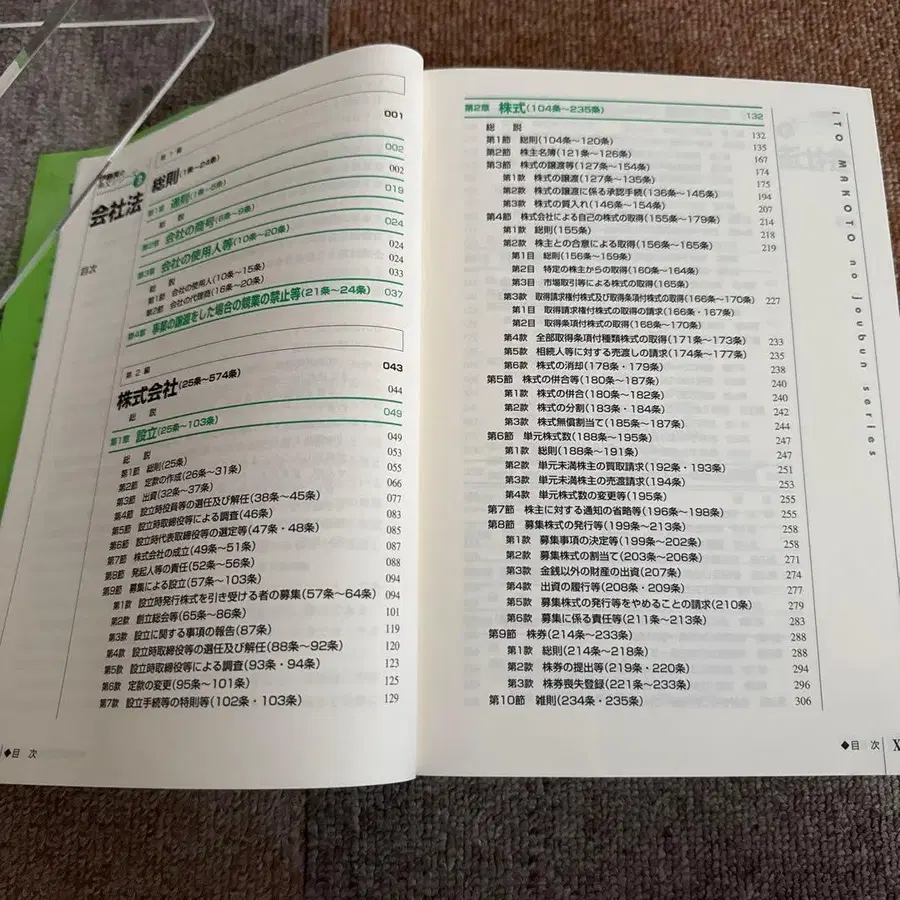 会社法
目次
第1編
総則(1条〜24条) 001
第1章 通則(1条〜5条) 002
総 説 002
第2章 会社の商号(6条〜9条) 019
第3章 会社の使用人等(10条〜20条) 024
総 説 024
第1節 会社の使用人(10条〜15条) 024
第2節 会社の代理商(16条〜20条) 033
第4章 事業の譲渡をした場合の競業の禁止等(21条〜24条) 037
第2編
株式会社(25条〜574条) 043
総 説 044
第1章 設立(25条〜103条) 049
総 説 049
第1節 総則(25条) 053
第2節 定款の作成(26条〜31条) 055
第3節 出資(32条〜37条) 066
第4節 設立時役員等の選任及び解任(38条〜45条) 077
第5節 設立時取締役等による調査(46条) 083
第6節 設立時代表取締役等の選定等(47条・48条) 085
第7節 株式会社の成立(49条〜51条) 087
第8節 発起人等の責任(52条〜56条) 088
第9節 募集による設立(57条〜103条) 094
第1款 設立時発行株式を引き受ける者の募集(57条〜64条) 094
第2款 創立総会等(65条〜86条) 101
第3款 設立に関する事項の報告(87条) 119
第4款 設立時取締役等の選任及び解任(88条〜92条) 120
第5款 設立時取締役等による調査(93条・94条) 123
第6款 定款の変更(95条〜101条) 125
第7款 設立手続等の特則等(102条・103条) 129
◆目 次
第2章 株式(104条〜235条) 132
総 説 132
第1節 総則(104条〜120条) 135
第2節 株主名簿(121条〜126条) 167
第3節 株式の譲渡等(127条〜154条) 174
第1款 株式の譲渡(127条〜135条) 175
第2款 株式の譲渡に係る承認手続(136条〜145条) 194
第3款 株式の質入れ(146条〜154条) 207
第4節 株式会社による自己の株式の取得(155条〜179条) 214
第1款 総則(155条) 218
第2款 株主との合意による取得(156条〜165条) 219
第1目 総則(156条〜159条)
第2目 特定の株主からの取得(160条〜164条)
第3目 市場取引等による株式の取得(165条)
第3款 取得請求権付株式及び取得条項付株式の取得(166条〜170条) 227
第1目 取得請求権付株式の取得の請求(166条・167条)
第2目 取得条項付株式の取得(168条〜170条)
第4款 全部取得条項付種類株式の取得(171条〜173条) 233
第5款 相続人等に対する売渡しの請求(174条〜177条) 235
第6款 株式の消却(178条・179条) 238
第5節 株式の併合等(180条〜187条) 240
第1款 株式の併合(180条〜182条) 240
第2款 株式の分割(183条・184条) 242
第3款 株式無償割当て(185条〜187条) 244
第6節 単元株式数(188条〜195条) 247
第1款 総則(188条〜191条) 247
第2款 単元未満株主の買取請求(192条・193条) 251
第3款 単元未満株主の売渡請求(194条) 253
第4款 単元株式数の変更等(195条) 255
第7節 株主に対する通知の省略等(196条〜198条) 255
第8節 募集株式の発行等(199条〜213条) 258
第1款 募集事項の決定等(199条〜202条) 258
第2款 募集株式の割当て(203条〜206条) 271
第3款 金銭以外の財産の出資(207条) 274
第4款 出資の履行等(208条・209条) 277
第5款 募集株式の発行等をやめることの請求(210条) 279
第6款 募集に係る責任等(211条〜213条) 283
第9節 株券(214条〜233条) 288
第1款 総則(214条〜218条) 288
第2款 株券の提出等(219条・220条) 294
第3款 株券喪失登録(221条〜233条) 296
第10節 雑則(234条・235条) 306
ITO MAKOTO no joubun series
◆目 次